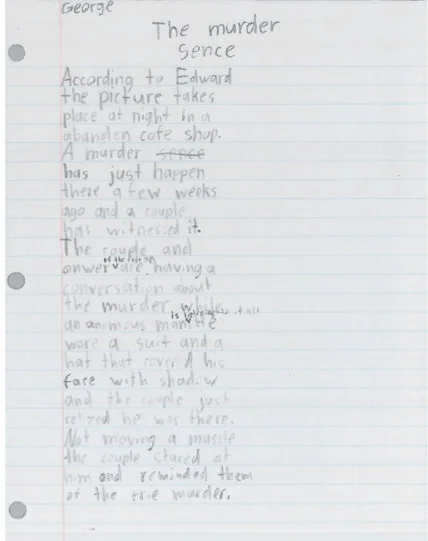 George
The murder
Sence
According to Edward
the picture takes
place at night in a
abanden cofe shop.
A murder sence
has just happen
there a few weeks
ago and a couple
has witnessed it.
The couple and
onwer are having a
conversation about
the murder while
an animous man is He
wore a suit and a
hat that cover d his
face with shadow
and the couple just
relized he was there.
Not moving a mussle
the couple stared at
him and reminded them
of the erie murder.